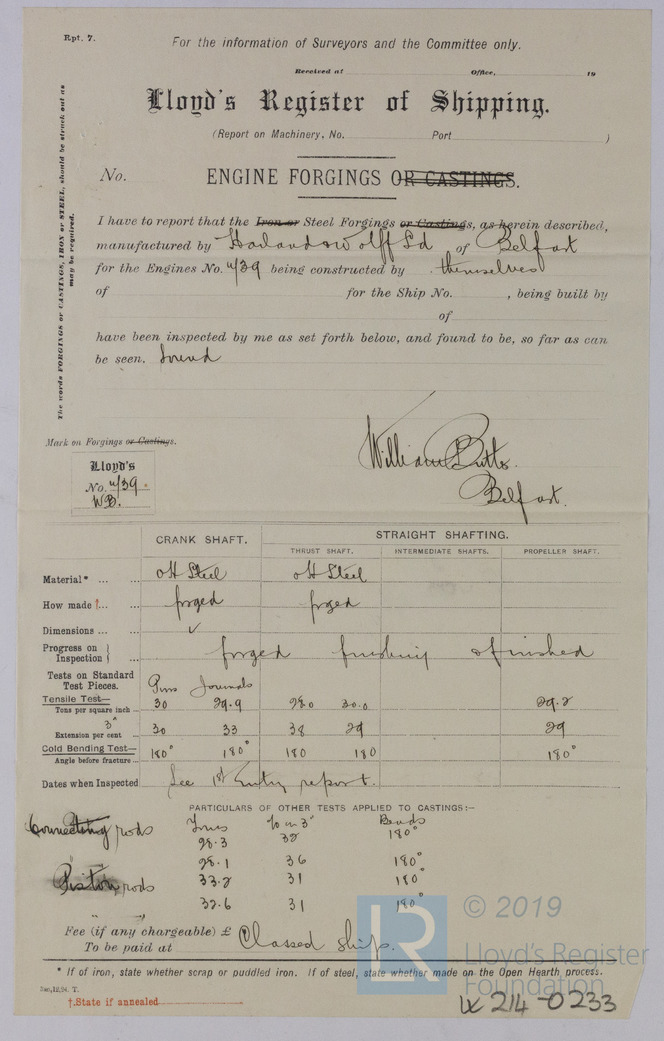 Rpt. 7.
For the information of Surveyors and the Committee only.
Received at Office, 19
Lloyd's Register of Shipping.
(Report on Machinery, No. Port )
No. ENGINE FORGINGS OR CASTINGS.
The words FORGINGS or CASTINGS, IRON or STEEL, should be struck out as may be required.
I have to report that the Iron or Steel Forgings or Castings, as herein described,
manufactured by Harland & Wolff Ld of Belfast
for the Engines No. 4/39 being constructed by themselves
of for the Ship No. , being built by
of
have been inspected by me as set forth below, and found to be, so far as can
be seen. Sound
William Butts.
Belfast.
Mark on Forgings or Castings.
Lloyd's
No. 4/39.
WB.
CRANK SHAFT. STRAIGHT SHAFTING.
THRUST SHAFT. INTERMEDIATE SHAFTS. PROPELLER SHAFT.
Material* ... ... OH Steel OH Steel
How made †... ... forged forged
Dimensions ... ... ✓
Progress on Inspection } ... forged finishing & finished
Tests on Standard Test Pieces. Pins Journals
Tensile Test—
Tons per square inch ... 30 29.9 28.0 30.0 29.2
3"
Extension per cent ... 30 33 38 29 29
Cold Bending Test—
Angle before fracture ... 180° 180° 180 180 180°
Dates when Inspected See 1st Entry report.
PARTICULARS OF OTHER TESTS APPLIED TO CASTINGS:—
Connecting rods Tons % in 3" Bends
28.3 32 180°
28.1 36 180°
Piston rods 33.2 31 180°
32.6 31 180°
" "
Fee (if any chargeable) £
To be paid at Classed ship.
* If of iron, state whether scrap or puddled iron. If of steel, state whether made on the Open Hearth process.
†.State if annealed
LR
© 2019
Lloyd's Register
Foundation
W214-0233